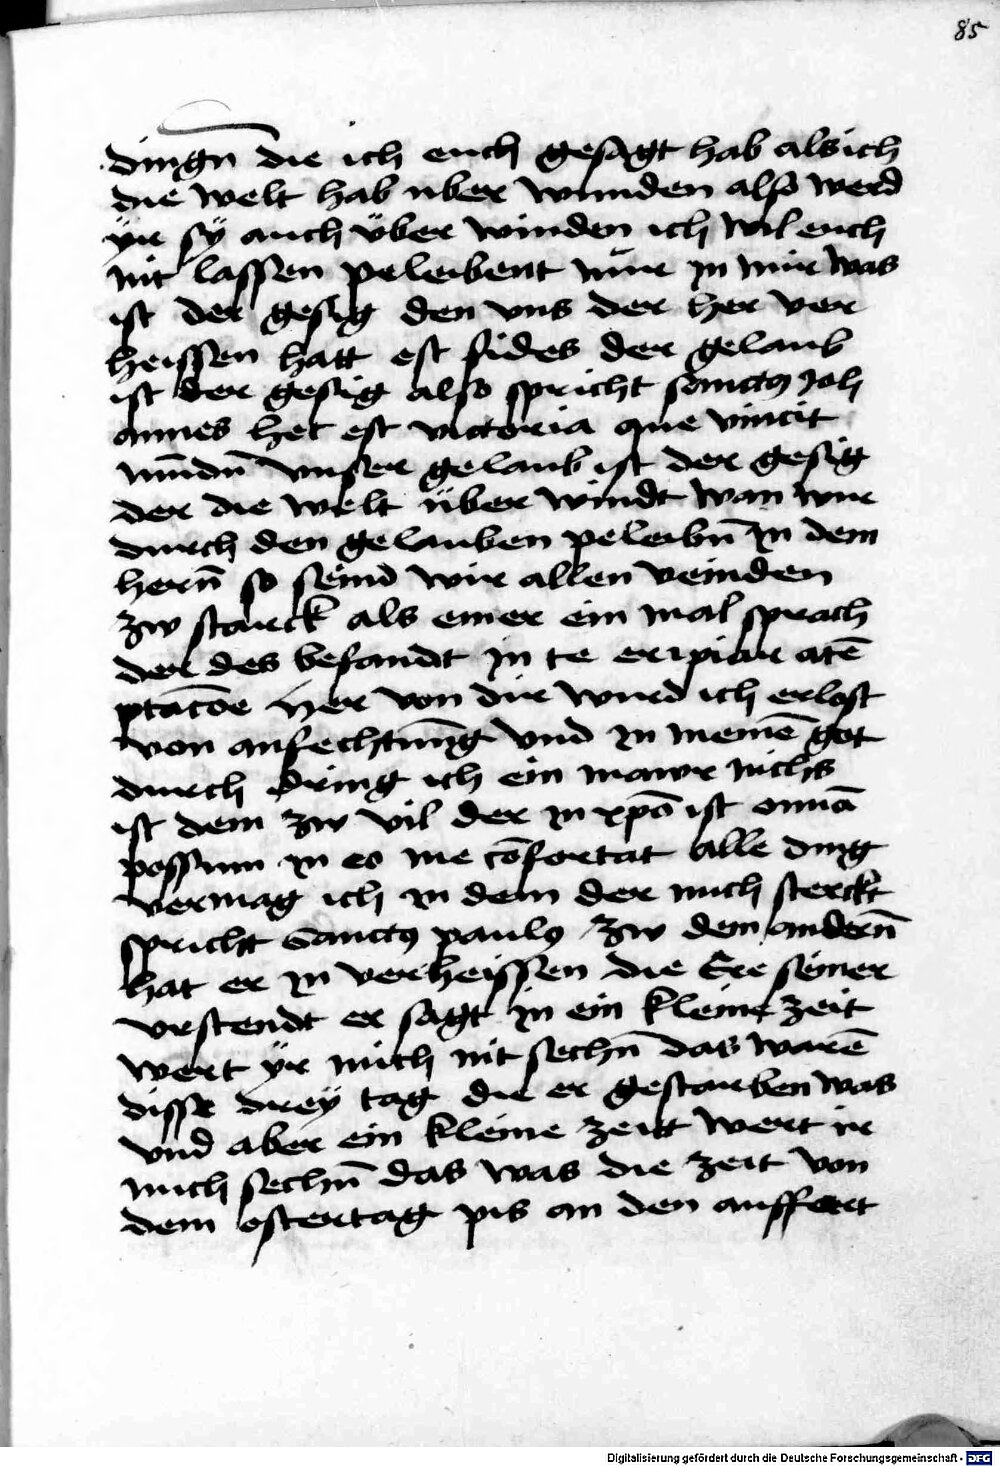 85
dingn̄ die ich euch gesagt hab als ich
die welt hab uber wunden also werd
ÿr sÿ auch über winden ich wil euch
nit lassen peleibent nür in mir was
ist der gesig den uns der her ver
heissen hatt est fides der gelaub
ist der gesig also spricht sanctus Joh
annes hec est victoria que vincit
mūdū unser gelaub ist der gesig
der die welt über windt wan wir
durch den gelauben peleibn̄ in dem
hern̄ so seind wir allen veinden
zw starck als einer ein mal sprach
der des befandt in te eripiar a tē
ptatōe her von dir wurd ich erlost
von anfechtung und in meinē got
durch dring ich ein mawr nichs
ist dem zw vil der in xpō ist omīa
possum in eo me cōfortat alle ding
vermag ich in dem der mich sterckt
spricht Sanctus paulus zw dem andern̄
hat er in verheissen die Ere seiner
urstendt er sagt in ein kleine zeit
wert ÿr mich nit sechn̄ das warē
disse dreÿ tag die er gestarben was
und aber ein kleine zeitt wert ir
mich sechn̄ das was die zeit von
dem ostertag pis an den auffert
Digitalisierung gefördert durch die Deutsche Forschungsgemeinschaft - DFG